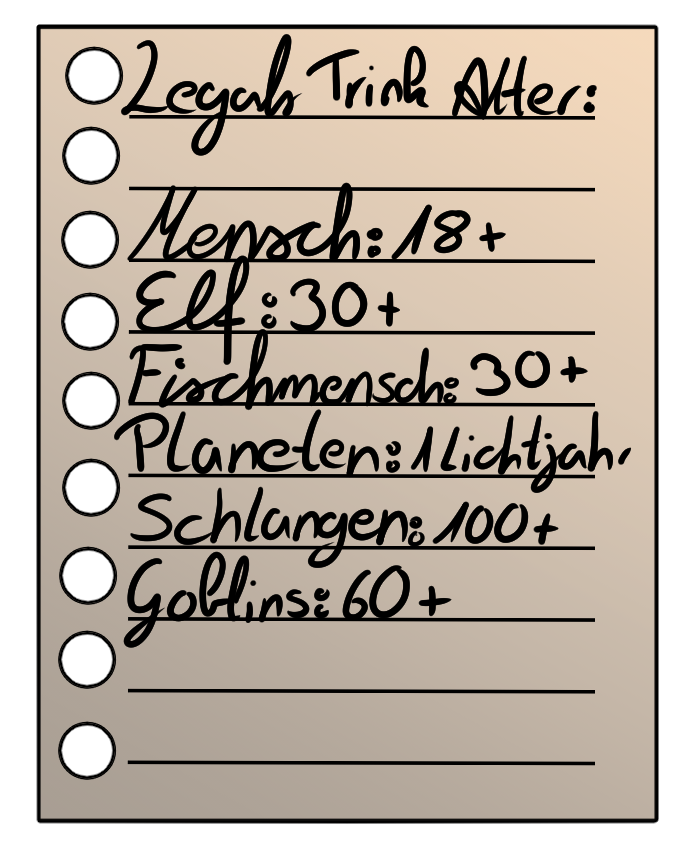 Legals Trink Alter:
Mensch: 18+
Elf: 30+
Fischmensch: 30+
Planeten: 1 Lichtjahr
Schlangen: 100+
Goblins: 60+